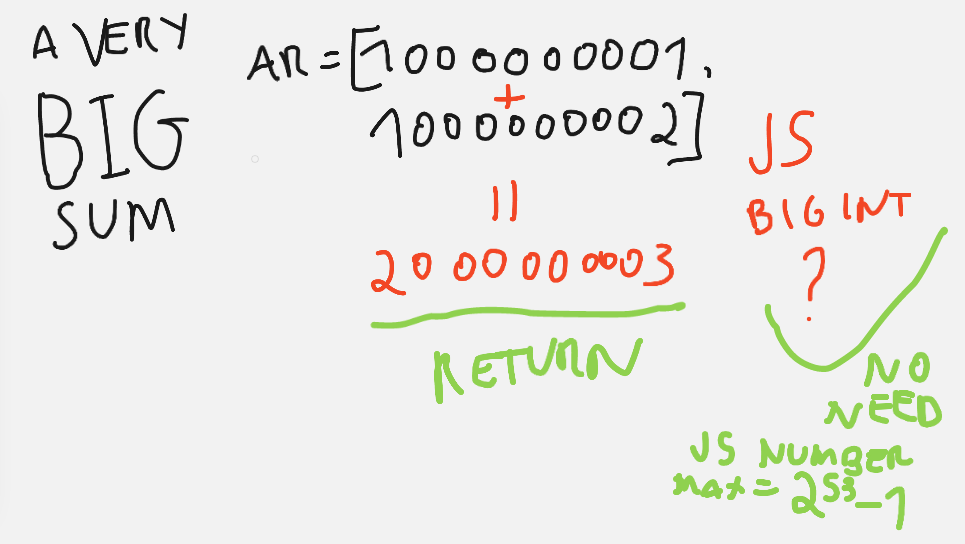 A VERY
BIG
SUM
AR = [1000000001,
+
1000000002]
=
2000000003
RETURN
JS
BIG INT
?
NO
NEED
JS NUMBER
MAX = 2⁵³-1